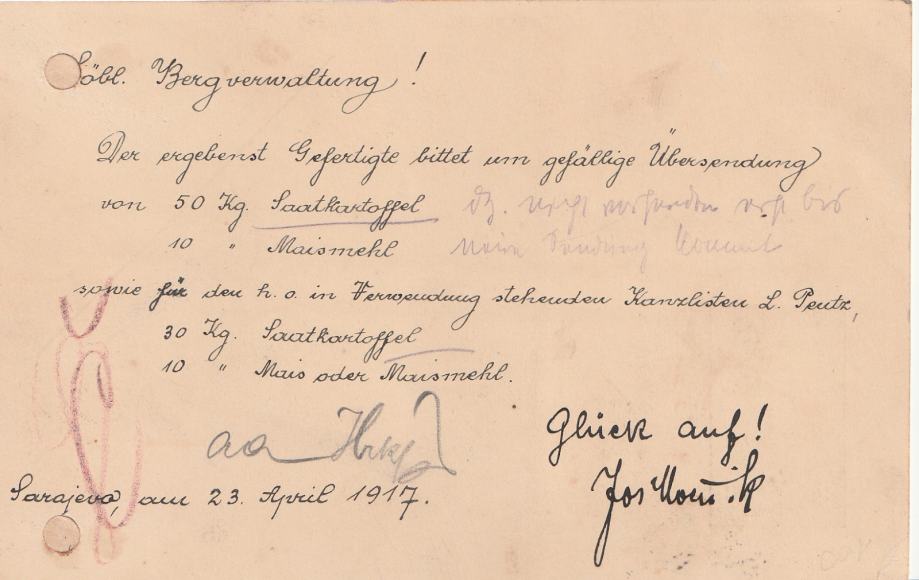 Löbl. Bergverwaltung!
Der ergebenst Gefertigte bittet um gefällige Übersendung
von 50 Kg. Saatkartoffel
nicht vorhanden erst bis
10 " Maismehl
neue Sendung kommt
sowie für den h. o. in Verwendung stehenden Kanzlisten L. Peutz,
30 Kg. Saatkartoffel
10 " Mais oder Maismehl.
Glück auf!
aa
Jos
Sarajevo, am 23. April 1917.